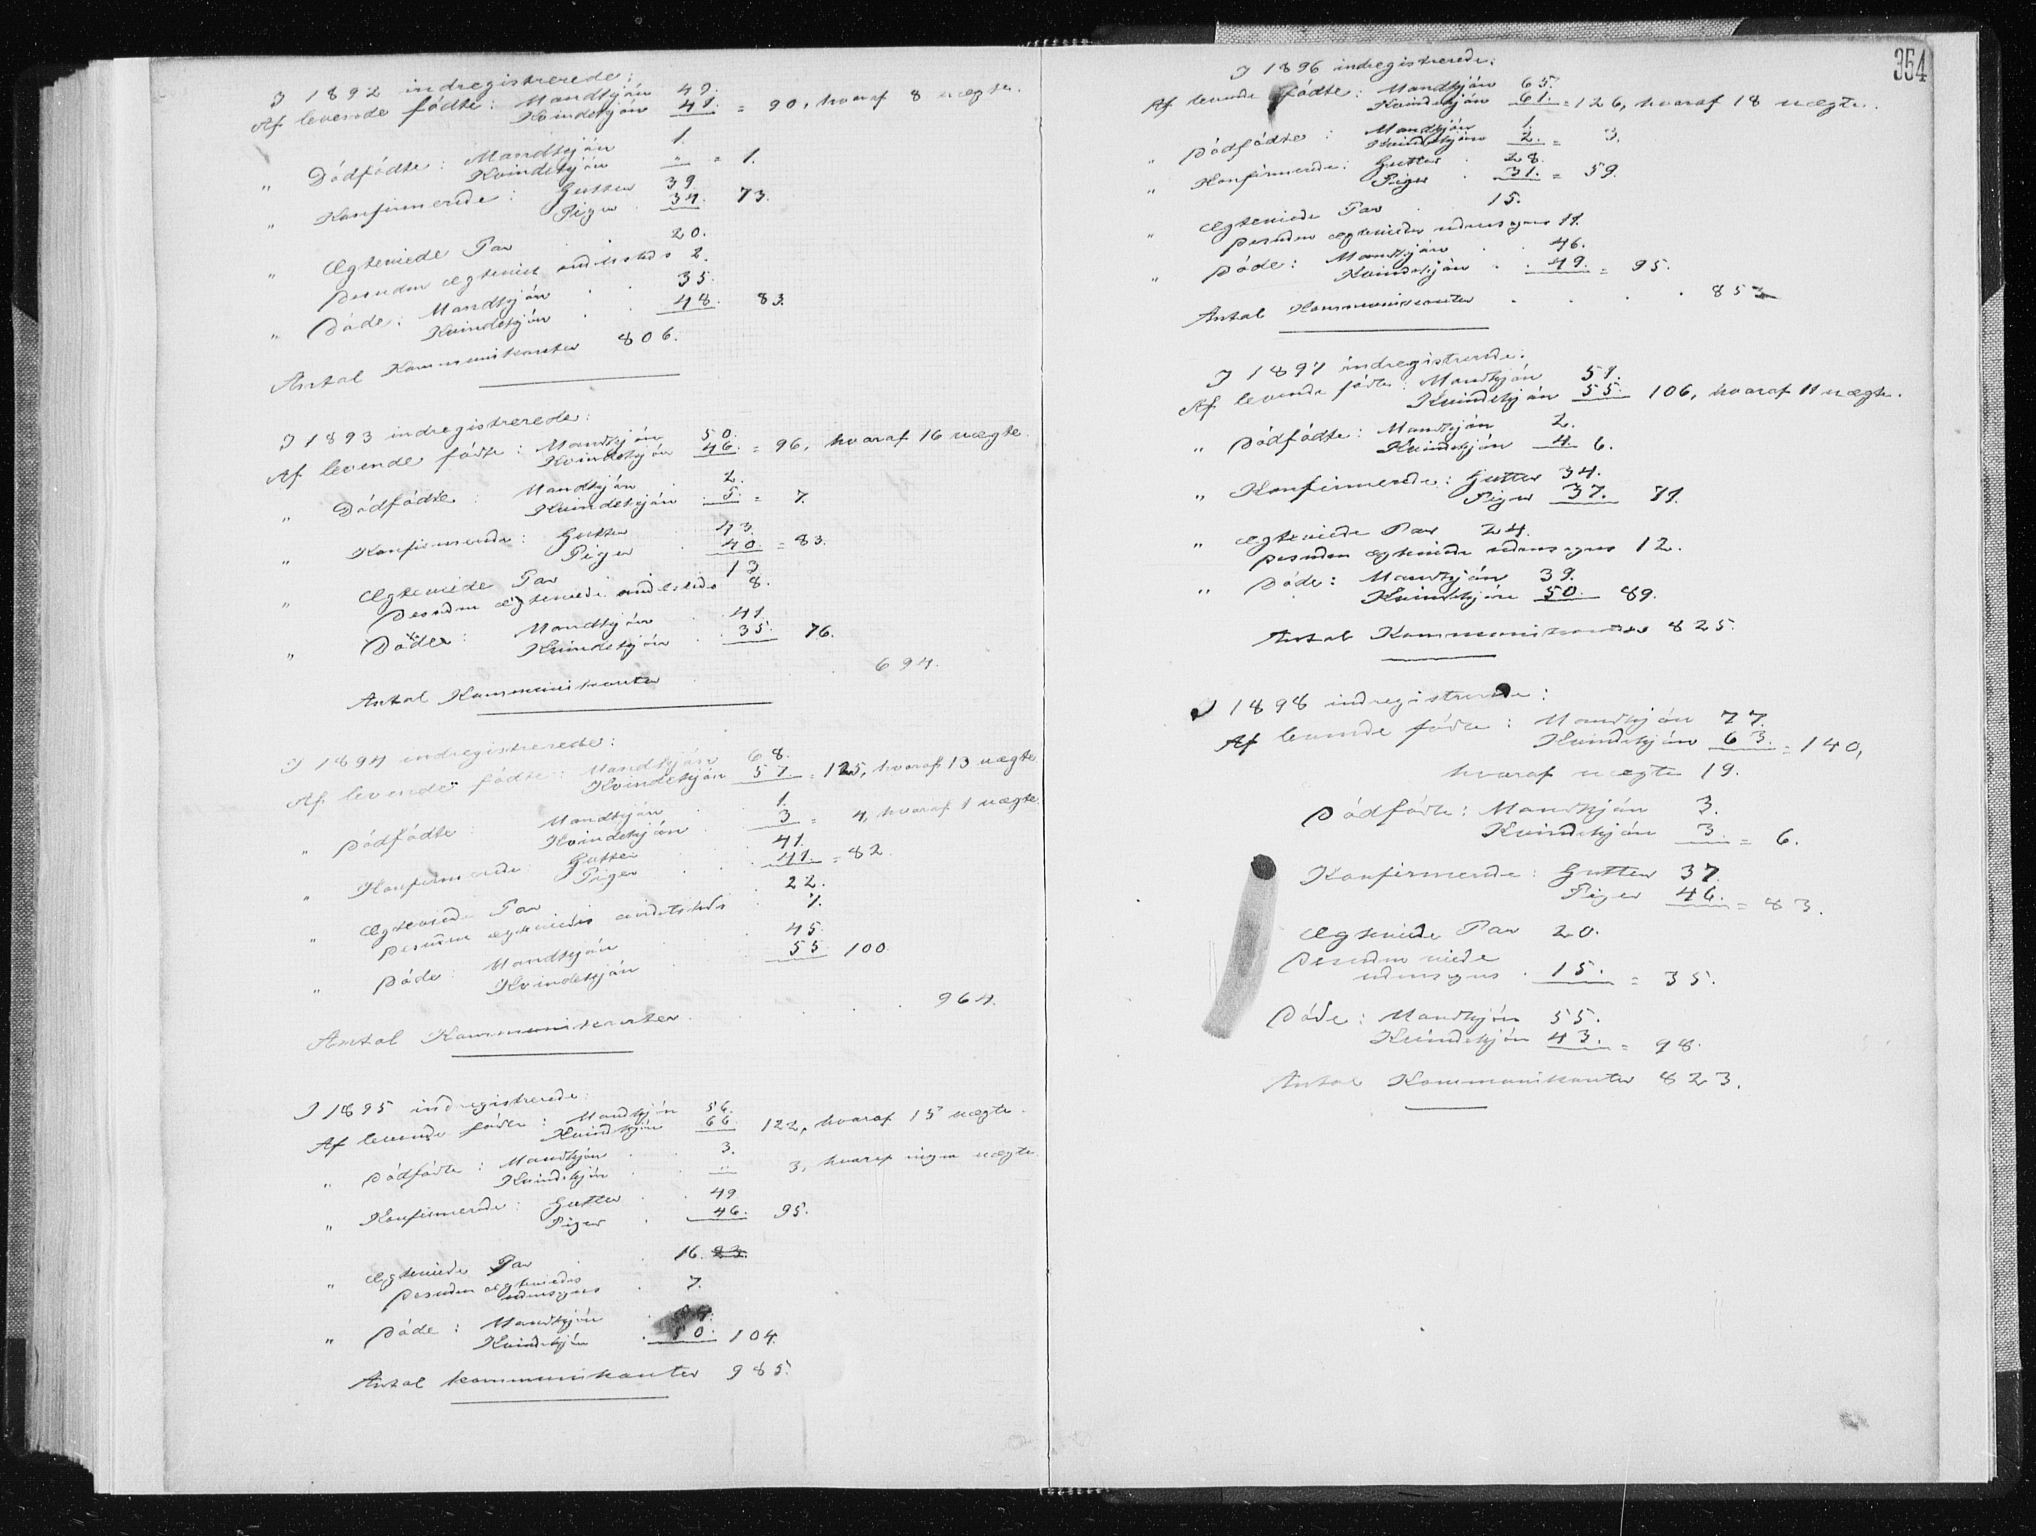 I 1892 indregistrerede:
Af levende fødte: Mandkjøn 49.
Kvindekjøn 41. = 90, hvoraf 8 uægte.
" Dødfødte: Mandkjøn 1.
Kvindekjøn " = 1.
" Konfirmerede: Gutter 39.
Piger 34. 73.
" Ægteviede Par 20.
Desuden ægteviet andetsteds 2.
" Døde: Mandkjøn 35.
Kvindekjøn 48. 83.
Antal Kommunikanter 806.
I 1893 indregistrerede:
Af levende fødte: Mandkjøn 50.
Kvindekjøn 46. = 96, hvoraf 16 uægte.
" Dødfødte: Mandkjøn 2.
Kvindekjøn 5. = 7
" Konfirmerede: Gutter 43.
Piger 40. = 83.
" Ægteviede Par 13
Desuden ægteviede andetsteds 8.
" Døde: Mandkjøn 41.
Kvindekjøn 35. 76.
Antal Kommunikanter 694.
I 1894 indregistrerede:
Af levende fødte: Mandkjøn 68.
Kvindekjøn 57 = 125, hvoraf 13 uægte
" Dødfødte: Mandkjøn 1.
Kvindekjøn 3 = 4, hvoraf 1 uægte.
" Konfirmerede Gutter 41.
Piger 41. = 82
" Ægteviede Par 22.
Desuden ægteviedes andetsteds 7.
" Døde: Mandkjøn 45.
Kvindekjøn 55 100
Antal Kommunikanter 964.
I 1895 indregistrerede:
Af levende fødte: Mandkjøn 56.
Kvindekjøn 66 122, hvoraf 15 uægte.
" Dødfødte: Mandkjøn 3.
Kvindekjøn " 3, hvoraf ingen uægte.
" Konfirmerede: Gutter 49
Piger 46. 95.
" Ægteviede Par 16. 23.
Desuden ægteviedes
udensogns 7.
" Døde: Mandkjøn
Kvindekjøn 50. 104.
Antal kommunikanter 985.
354
I 1896 indregistrerede:
Af levende fødte: Mandkjøn 65.
Kvindekjøn 61. = 126, hvoraf 18 uægte.
" Dødfødte: Mandkjøn 1.
Kvindekjøn 2. = 3.
" Konfirmerede: Gutter 28.
Piger 31. = 59.
" Ægteviede Par 15.
Desuden ægteviedes udensogns 11.
" Døde: Mandkjøn 46.
Kvindekjøn 49. = 95.
Antal Kommunikanter 853
I 1897 indregistrerede:
Af levende fødte: Mandkjøn 51.
Kvindekjøn 55. 106, hvoraf 11 uægte.
" Dødfødte: Mandkjøn 2.
Kvindekjøn 4 6.
" Konfirmerede: Gutter 34.
Piger 37. 71.
" Ægteviede Par 24.
Desuden ægteviede udensogns 12.
" Døde: Mandkjøn 39.
Kvindekjøn 50. 89.
Antal Kommunikanter 825.
I 1898 indregistrerede:
Af levende fødte: Mandkjøn 77.
Kvindekjøn 63. = 140,
hvoraf uægte 19.
Dødfødte: Mandkjøn 3.
Kvindekjøn 3. = 6.
Konfirmerede: Gutter 37.
Piger 46. = 83.
Ægteviede Par 20.
Desuden viede
udensogns 15. = 35.
Døde: Mandkjøn 55.
Kvindekjøn 43. = 98.
Antal Kommunikanter 823.